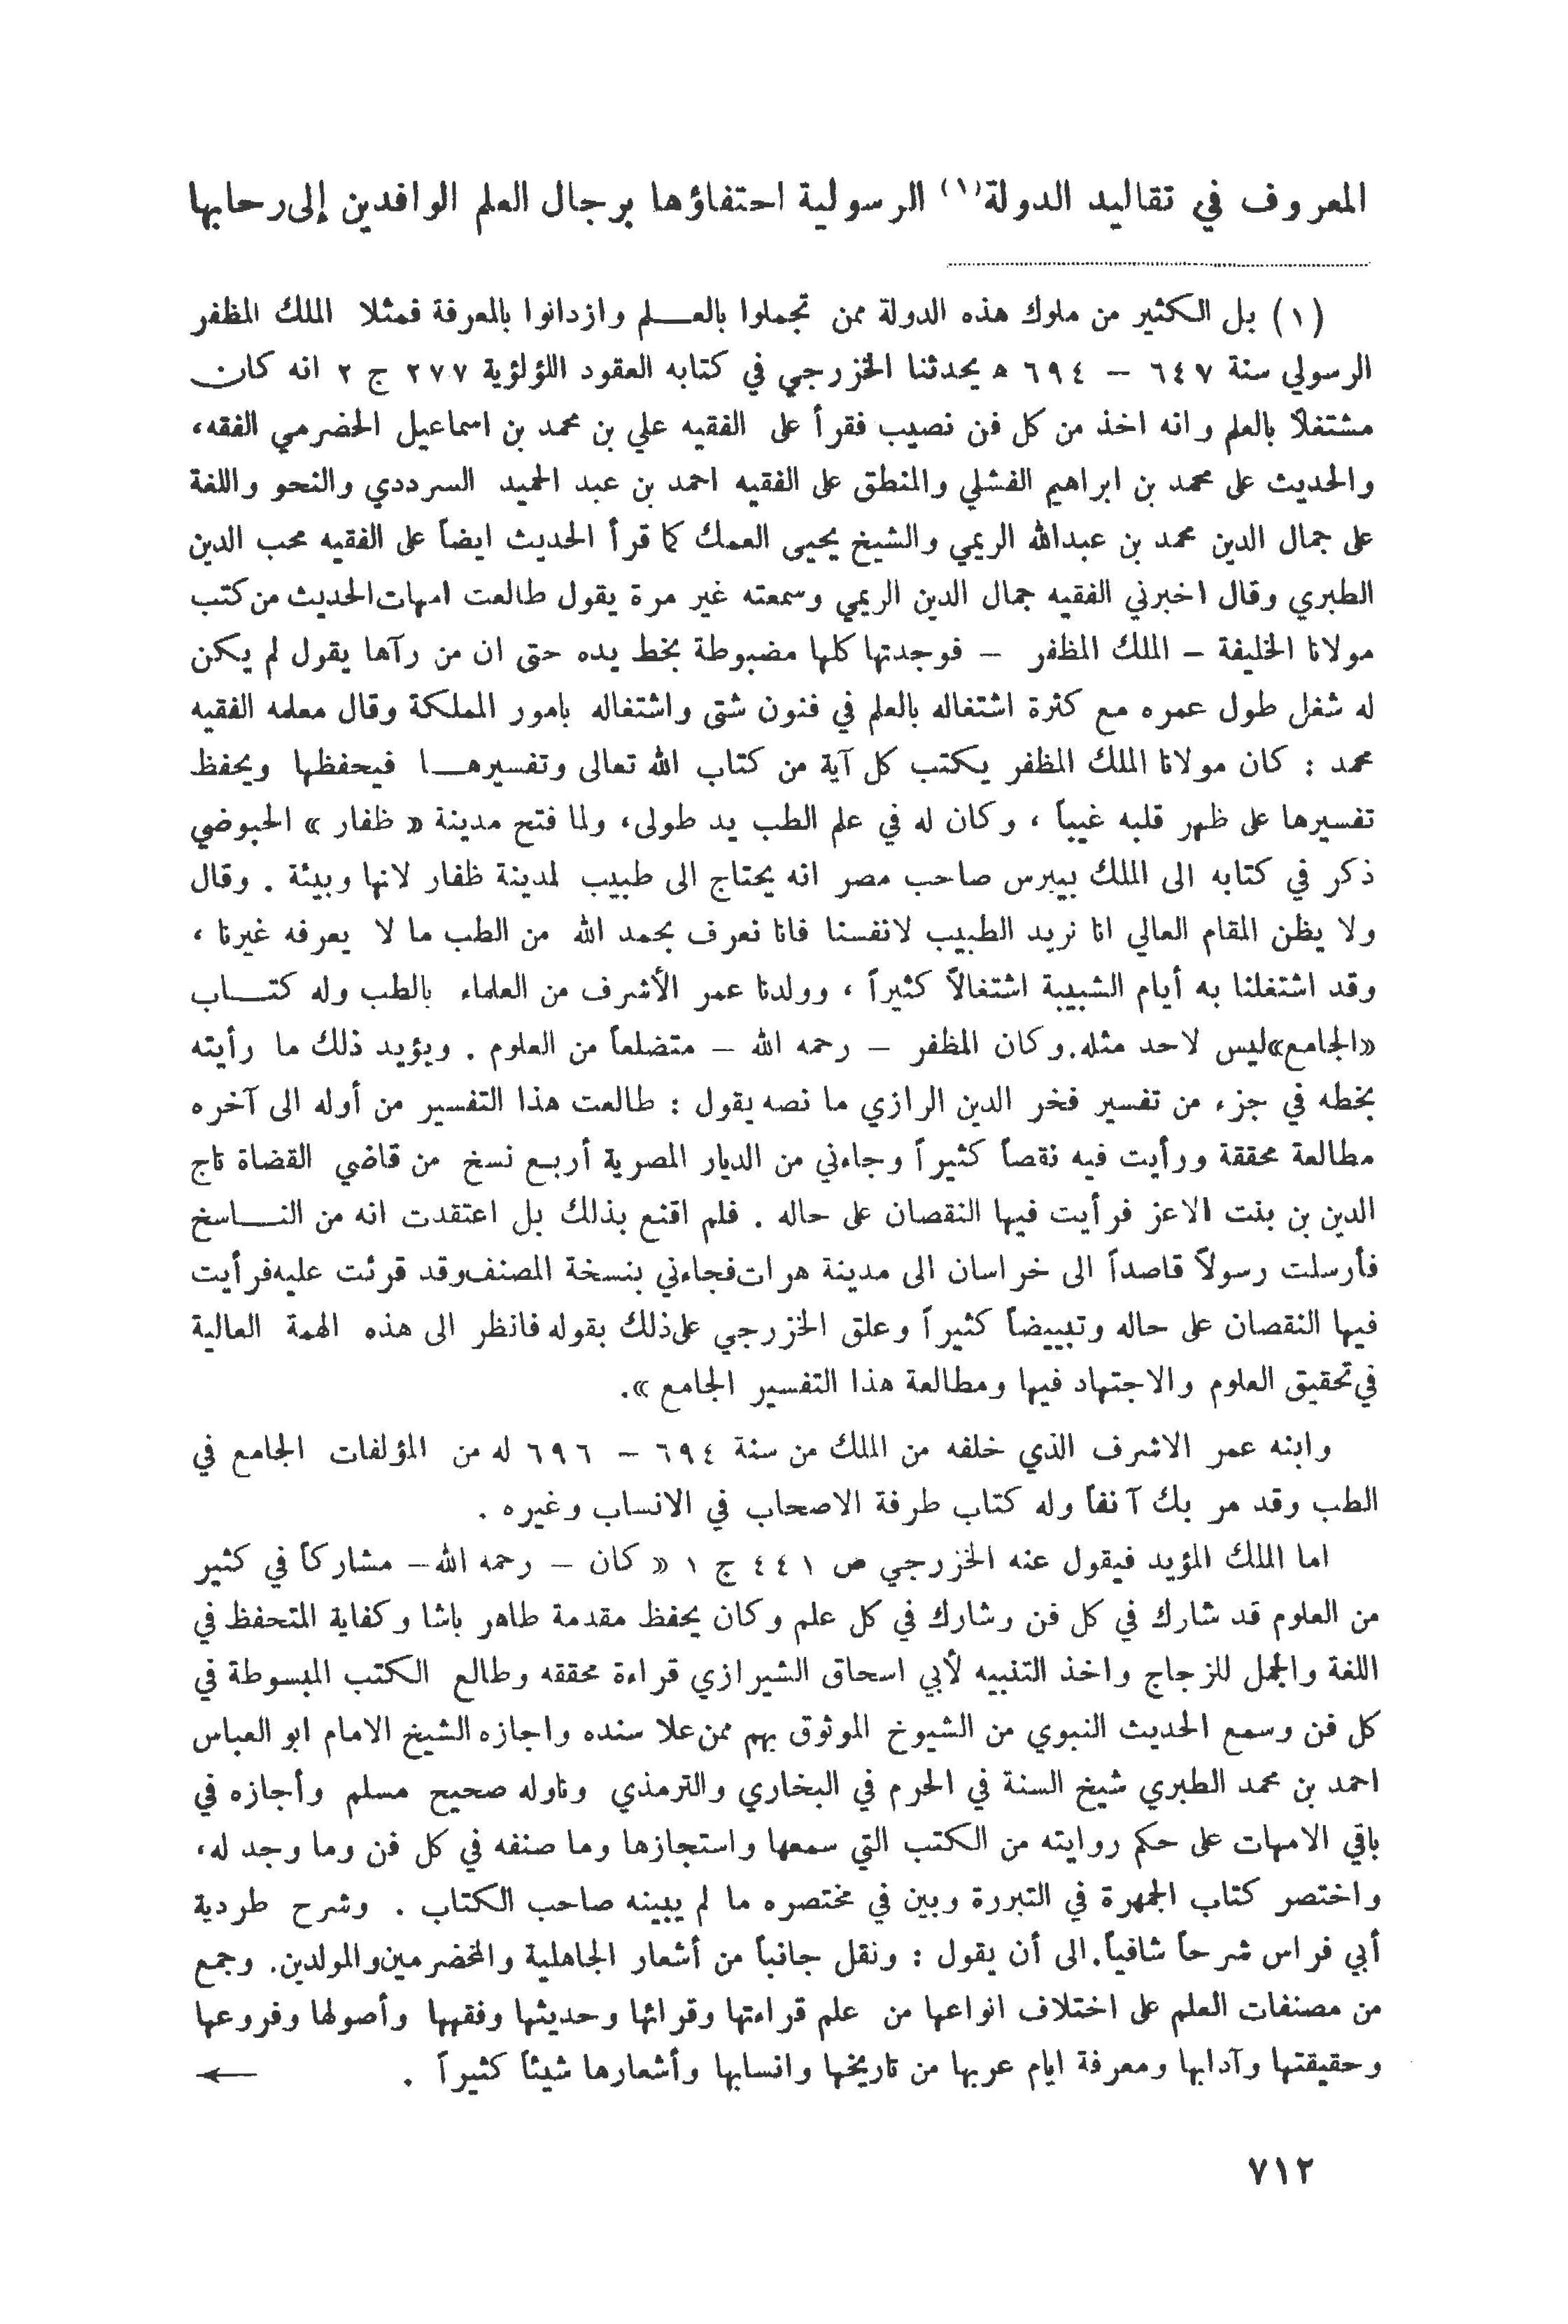 المعروف في تقاليد الدولة(١) الرسولية احتفاؤها برجال العلم الوافدين إلى رحابها
(١) بل الكثير من ملوك هذه الدولة ممن تجملوا بالعـــلم وازدانوا بالمعرفة فمثلا الملك المظفر
الرسولي سنة ٦٤٧ – ٦٩٤ ه يحدثنا الخزرجي في كتابه العقود اللؤلؤية ٢٧٧ ج ٢ انه كان
مشتغلاً بالعلم وانه اخذ من كل فن نصيب فقرأ على الفقيه علي بن محمد بن اسماعيل الحضرمي الفقه،
والحديث على محمد بن ابراهيم الفشلي والمنطق على الفقيه احمد بن عبد الحميد السرددي والنحو واللغة
على جمال الدين محمد بن عبدالله الريمي والشيخ يحيى العمك كما قرأ الحديث ايضاً على الفقيه محب الدين
الطبري وقال اخبرني الفقيه جمال الدين الريمي وسمعته غير مرة يقول طالعت امهات الحديث من كتب
مولانا الخليفة – الملك المظفر – فوجدتها كلها مضبوطة بخط يده حتى ان من رآها يقول لم يكن
له شغل طول عمره مع كثرة اشتغاله بالعلم في فنون شتى واشتغاله بامور المملكة وقال معلمه الفقيه
محمد : كان مولانا الملك المظفر يكتب كل آية من كتاب الله تعالى وتفسيرهـــا فيحفظها ويحفظ
تفسيرها على ظهر قلبه غيباً ، وكان له في علم الطب يد طولى، ولما فتح مدينة « ظفار » الحبوضي
ذكر في كتابه الى الملك بيبرس صاحب مصر انه يحتاج الى طبيب لمدينة ظفار لانها وبيئة . وقال
ولا يظن المقام العالي انا نريد الطبيب لانفسنا فانا نعرف بحمد الله من الطب ما لا يعرفه غيرنا ،
وقد اشتغلنا به أيام الشبيبة اشتغالاً كثيراً ، وولدنا عمر الأشرف من العلماء بالطب وله كتـــاب
«الجامع»ليس لاحد مثله.وكان المظفر – رحمه الله – متضلعاً من العلوم . ويؤيد ذلك ما رأيته
بخطه في جزء من تفسير فخر الدين الرازي ما نصه يقول : طالعت هذا التفسير من أوله الى آخره
مطالعة محققة ورأيت فيه نقصاً كثيراً وجاءني من الديار المصرية أربع نسخ من قاضي القضاة تاج
الدين بن بنت الاعز فرأيت فيها النقصان على حاله . فلم اقنع بذلك بل اعتقدت انه من النـــاسخ
فأرسلت رسولاً قاصداً الى خراسان الى مدينة هرات فجاءني بنسخة المصنف وقد قرئت عليه فرأيت
فيها النقصان على حاله وتبييضاً كثيراً وعلق الخزرجي على ذلك بقوله فانظر الى هذه الهمة العالية
في تحقيق العلوم والاجتهاد فيها ومطالعة هذا التفسير الجامع ».
وابنه عمر الاشرف الذي خلفه من الملك من سنة ٦٩٤ – ٦٩٦ له من المؤلفات الجامع في
الطب وقد مر بك آنفاً وله كتاب طرفة الاصحاب في الانساب وغيره .
اما الملك المؤيد فيقول عنه الخزرجي ص ٤٤١ ج ١ « كان – رحمه الله– مشاركاً في كثير
من العلوم قد شارك في كل فن وشارك في كل علم وكان يحفظ مقدمة طاهر باشا وكفاية المتحفظ في
اللغة والجمل للزجاج واخذ التنبيه لأبي اسحاق الشيرازي قراءة محققه وطالع الكتب المبسوطة في
كل فن وسمع الحديث النبوي من الشيوخ الموثوق بهم ممن علا سنده واجازه الشيخ الامام ابو العباس
احمد بن محمد الطبري شيخ السنة في الحرم في البخاري والترمذي وناوله صحيح مسلم وأجازه في
باقي الامهات على حكم روايته من الكتب التي سمعها واستجازها وما صنفه في كل فن وما وجد له،
واختصر كتاب الجمهرة في التبررة وبين في مختصره ما لم يبينه صاحب الكتاب . وشرح طردية
أبي فراس شرحاً شافياً.الى أن يقول : ونقل جانباً من أشعار الجاهلية والمخضرمين والمولدين. وجمع
من مصنفات العلم على اختلاف انواعها من علم قراءتها وقرائها وحديثها وفقهها وأصولها وفروعها
وحقيقتها وآدابها ومعرفة ايام عربها من تاريخها وانسابها وأشعارها شيئاً كثيراً .
٧١٢